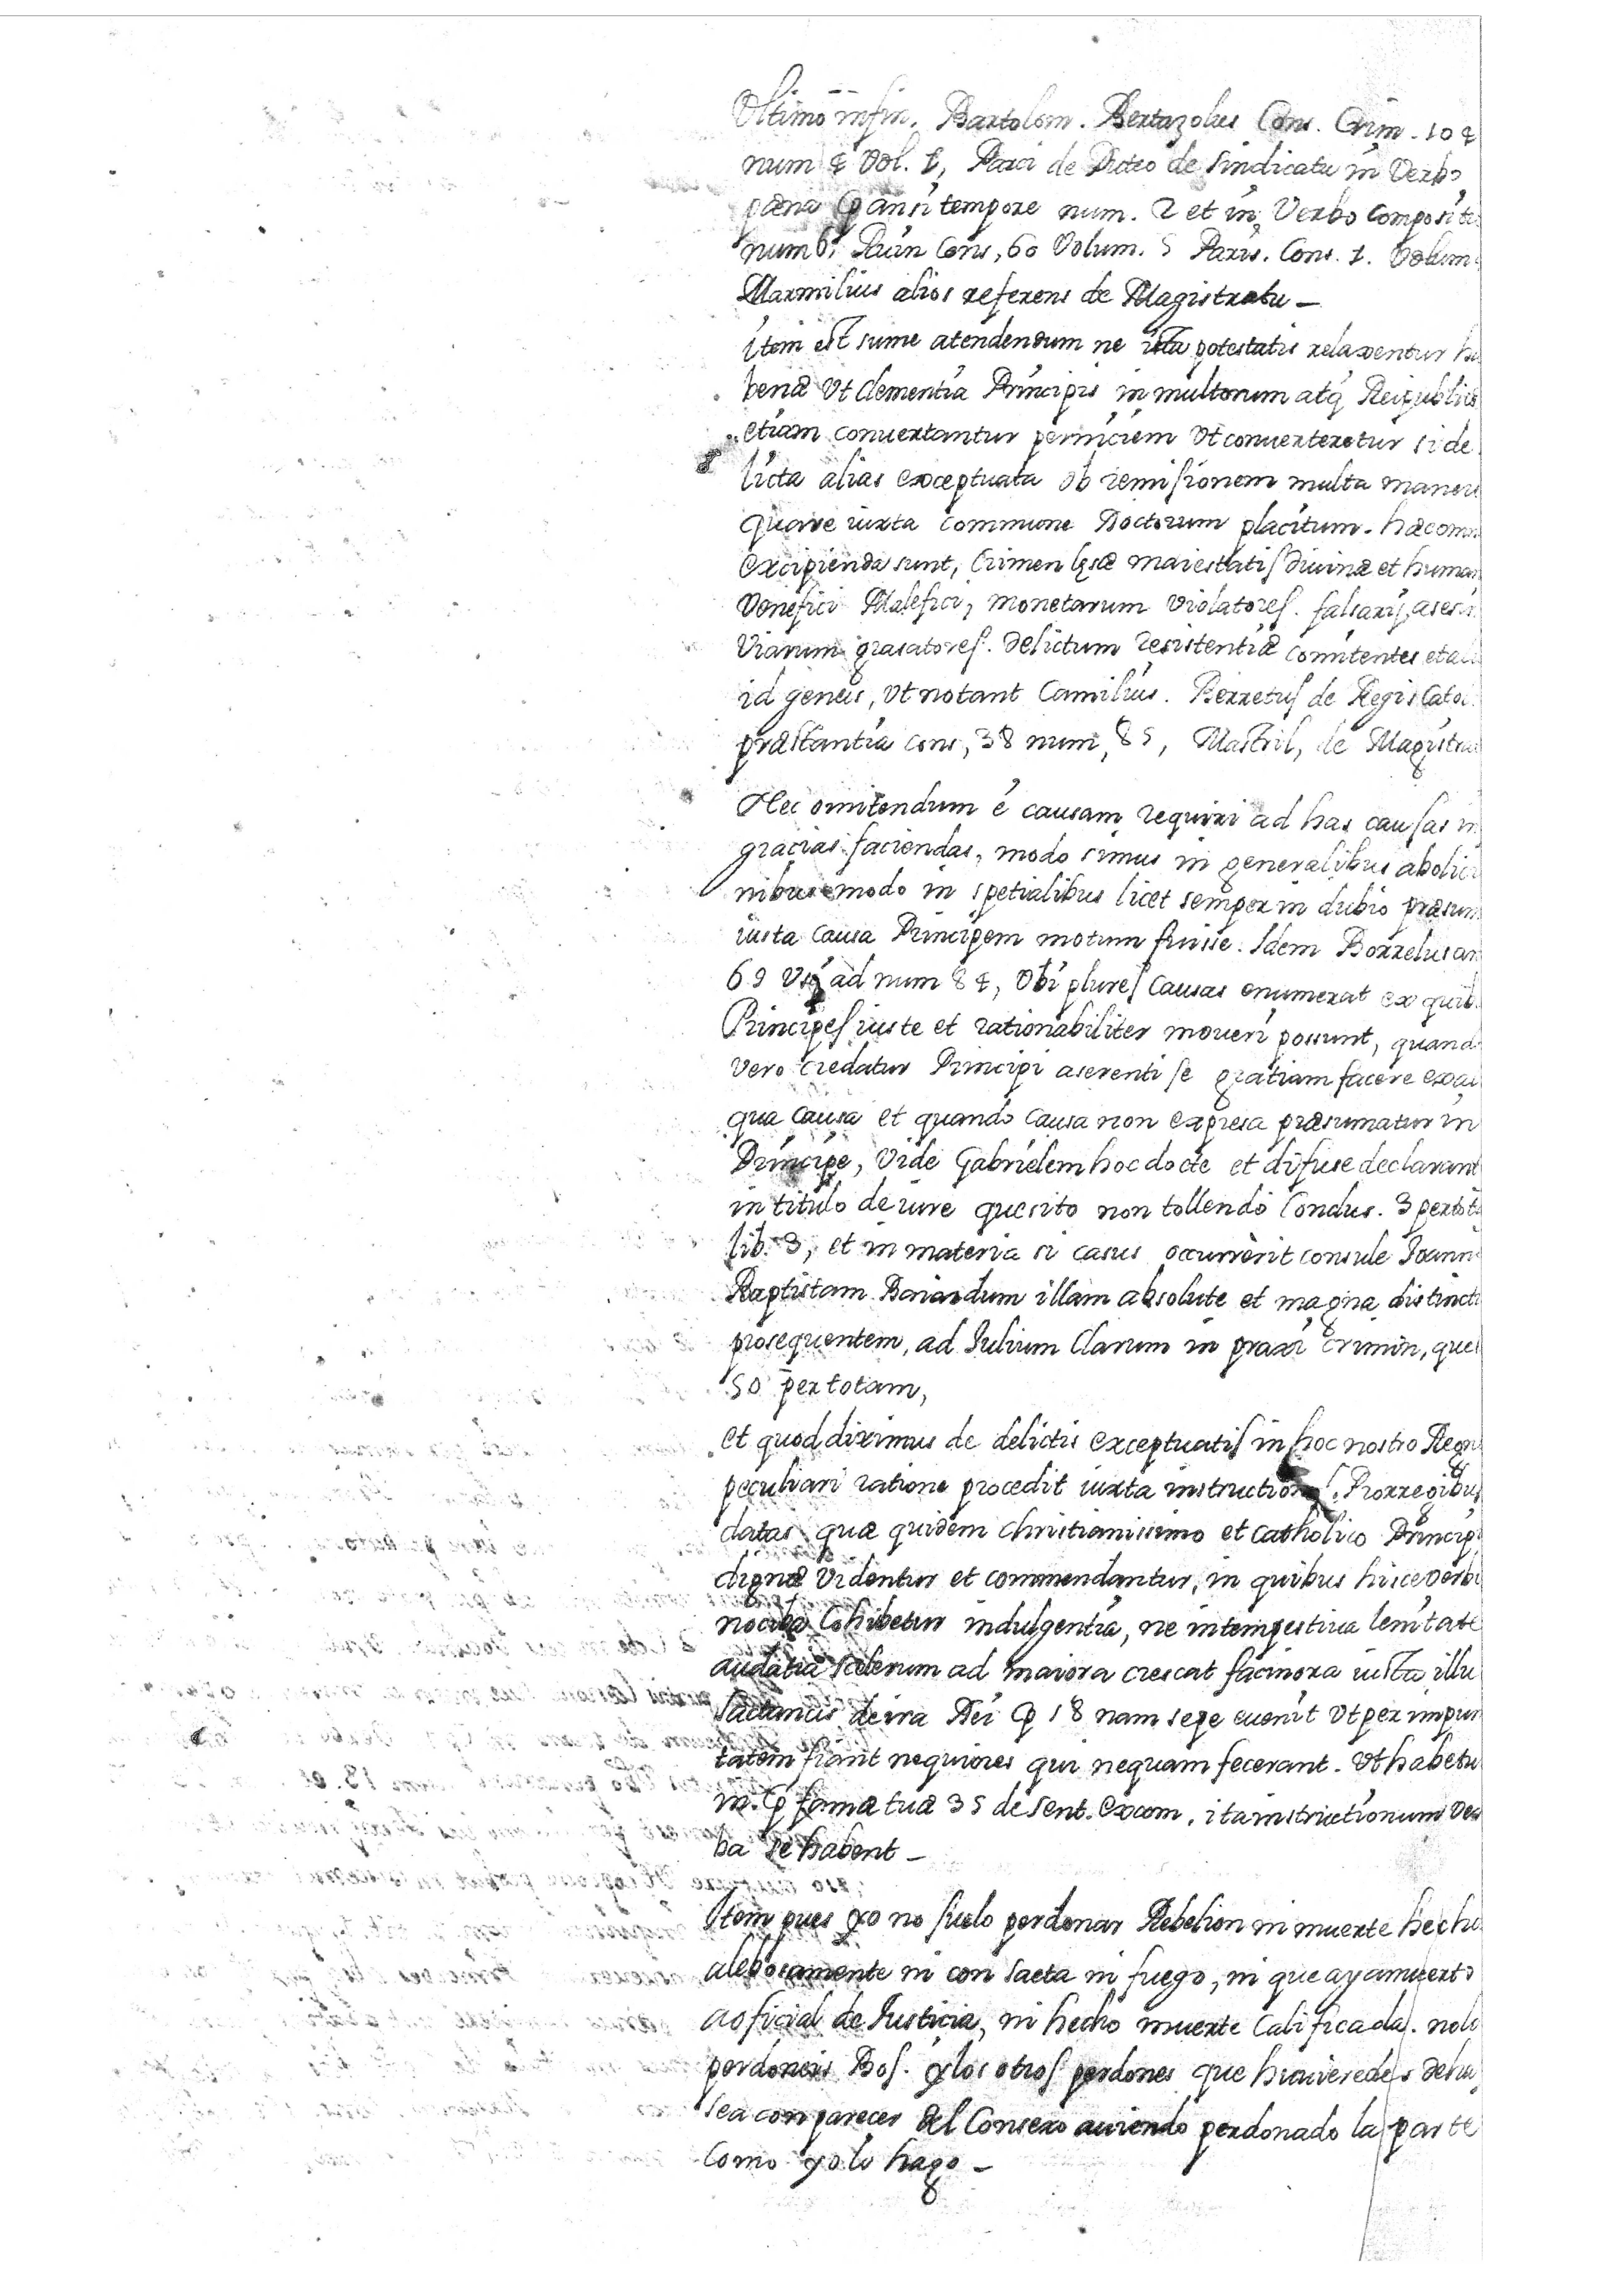 Vltimo infin. Bartolom. Bertazolus Cons. Crim. 104
num 4 Vol. 1, Paxi de Puteo de sindicatu in Verbo
pæna transi tempore num. 2 et in Verbo Composit
num 6. Cons, 60 Volum. 5 Paris. Cons. 1. Volum
Marmilius alios referens de Magistratu –
item est sume atendendum ne ista potestatis relaxentur ha
benæ Vt clementia Principis in multorum atq Reipublice
etiam conuertantur perniciem Vt conuerteretur si de
licta alias exceptuata ob remisionem multa maner
quare iuxta commune Doctorum placitum. hæc omn
excipienda sunt, Crimen lęsæ maiestatis diuinæ et human
Venefici Malefici, monetarum violatores. falsarij, asesin
Viarum grasatores. delictum resistentiæ comitentes et al
id genus, Vt notant Camilius. Berretus de Regis Catol
præstantia cons, 38 num, 85, Mastril, de Magistra
Nec omitendum é causam requiri ad has causas in
gracias faciendas, modo simus in generalibus abolici
nibus modo in spetialibus licet semper in dubio præsum
iusta causa Principem motum fuisse. Idem Borrelus an
69 Vsq ad num 84, Vbi plures Causas enumerat ex quib
Principes iuste et rationabiliter moueri possunt, quand
vero credatur Principi aserenti se gratiam facere ex ali
qua causa et quando causa non expresa præsumatur in
Principe, Vide Gabrielem hoc docte et difuse declarant
in titulo de iure quesito non tollendo Conclus. 3 per tot
lib. 3, et in materia si casus occurrerit consule Joann
Baptistam Baiardum illam absolute et magna distincti
prosequentem, ad Julium Clarum in praxi crimin, ques
50 per totam,
et quod diximus de delictis exceptuatis in hoc nostro Regn
peculiari ratione procedit iuxta instructiones Prorregibus
datas quæ quidem christianissimo et catholico Princip
dignæ Videntur et commendantur, in quibus hisce verbi
nociba Cohibetur indulgentia, ne intempestiua lenitate
audatia scelerum ad maiora crescat facinora iusta illu
Lactancis de ira Dei Cp 18 nam sepe euenit Vt per impun
tatem fiant nequiores qui nequam fecerant. Vt habetu
in. Cp famæ tuæ 35 de Sent. Excom, ita instructionum ver
ba se habent –
Item pues yo no suelo perdonar Rebelion ni muerte hecha
alebosamente ni con saeta ni fuego, ni que aya muerto
a oficial de Iusticia, ni hecho muerte Calificada. nolo
perdoneis Bos. y los otros perdones que hiuieredes deha
sea con parecer del Consexo auiendo perdonado la parte
como yo lo hago –